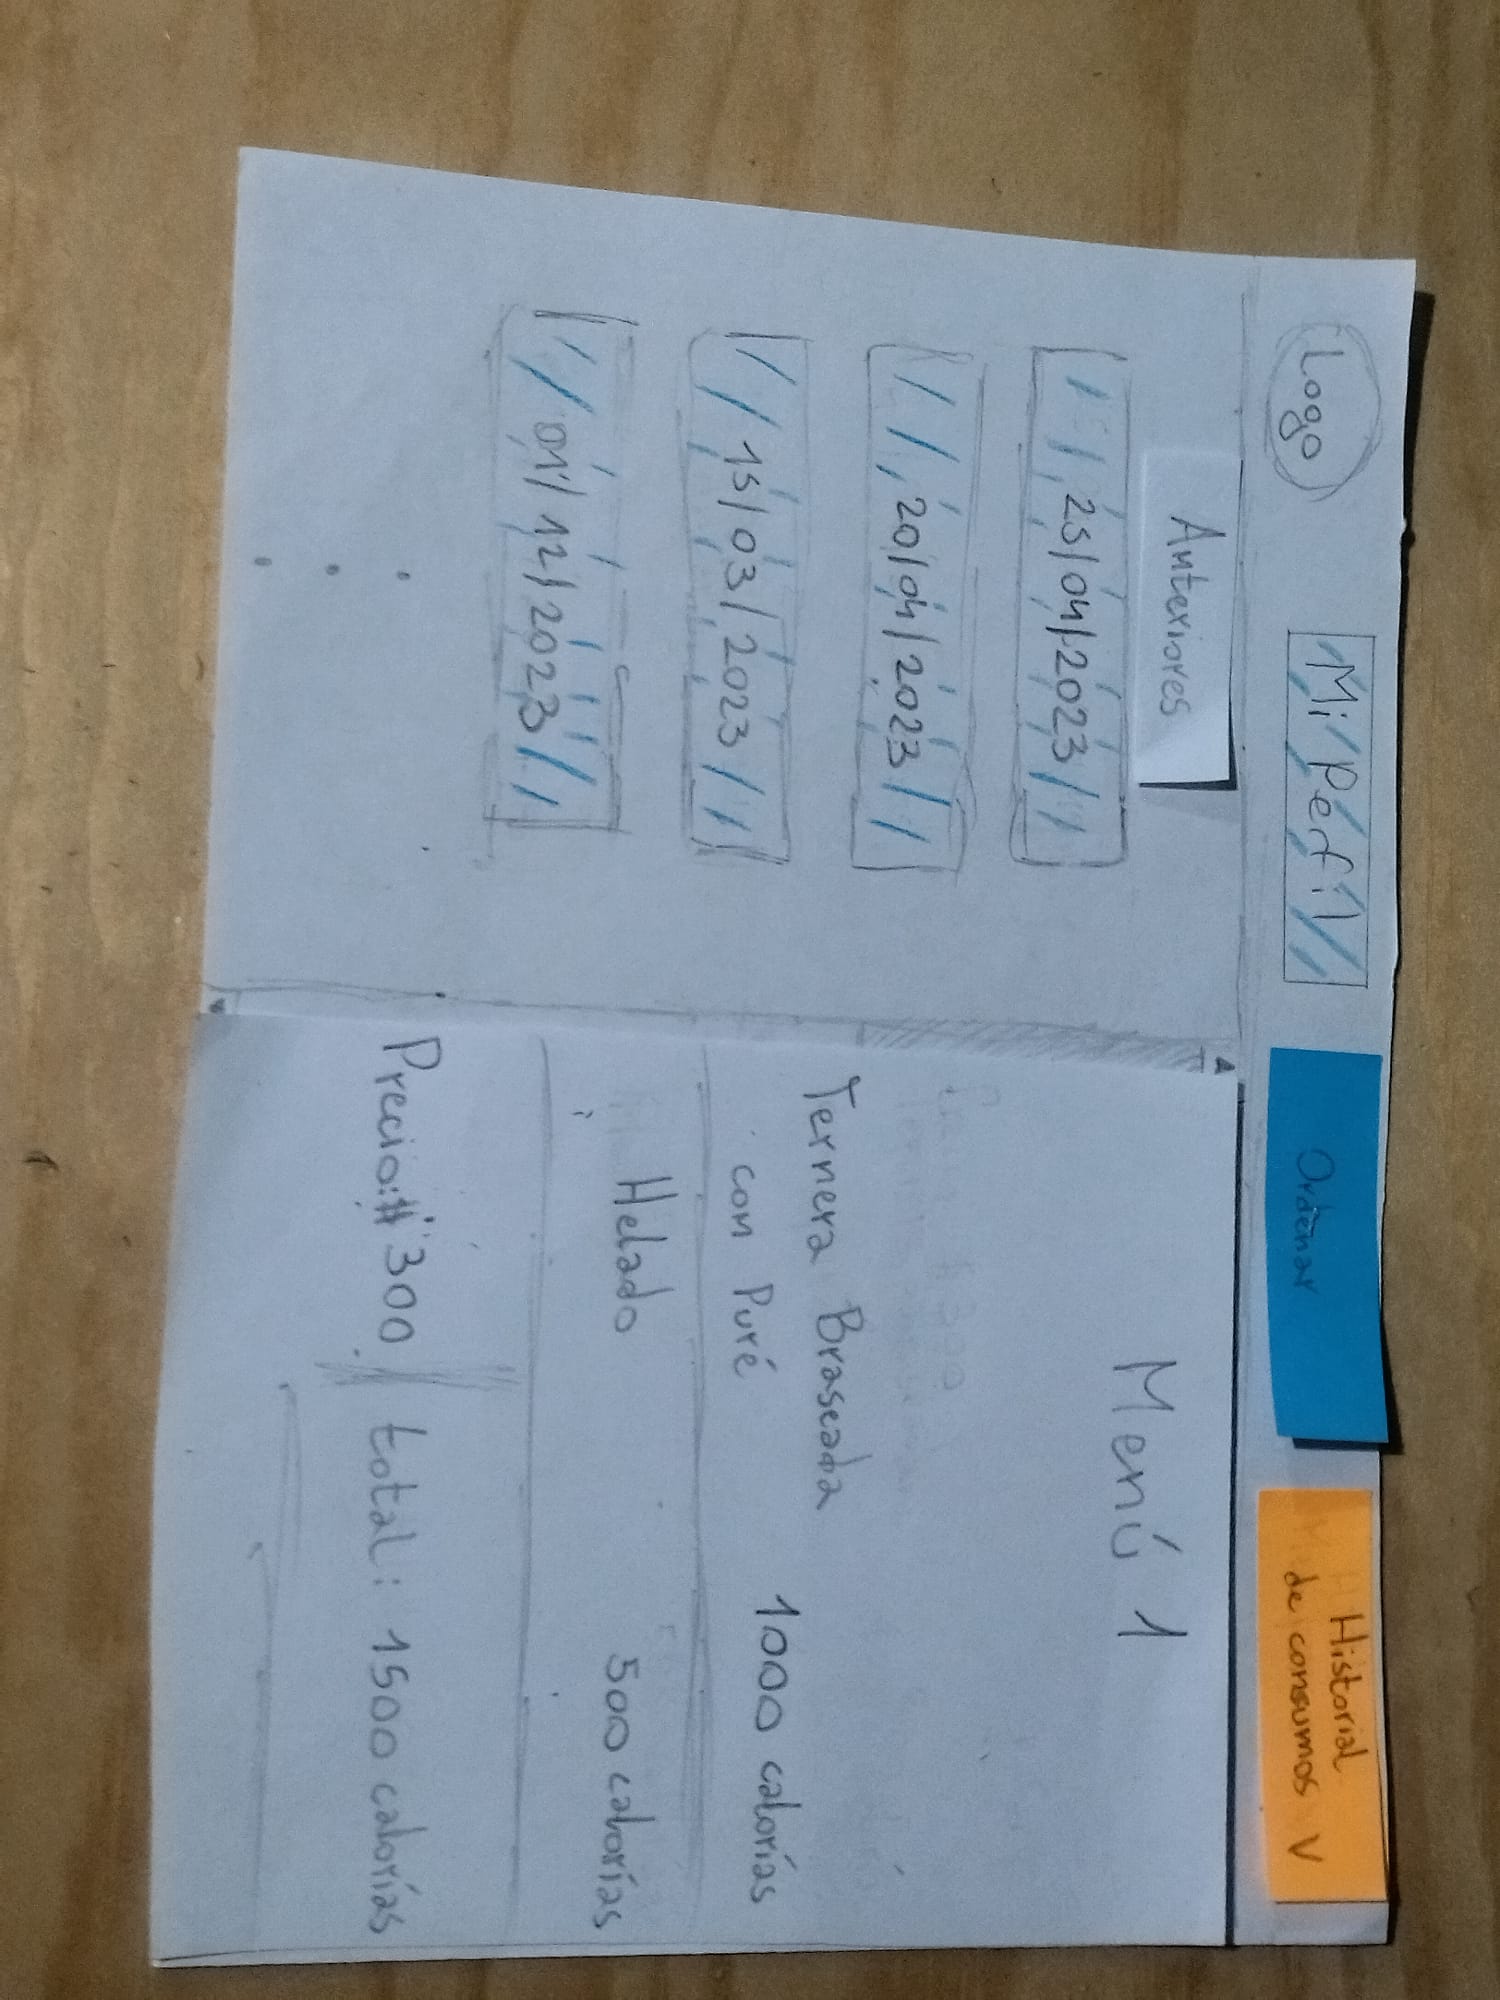 Logo
Mi Perfil
Ordenar
Historial
de consumos V
Anteriores
25/04/2023
20/04/2023
15/03/2023
01/12/2023
Menú 1
Ternera Braseada
con Puré
1000 calorías
Helado
500 calorías
Precio: $ 300
total: 1500 calorías